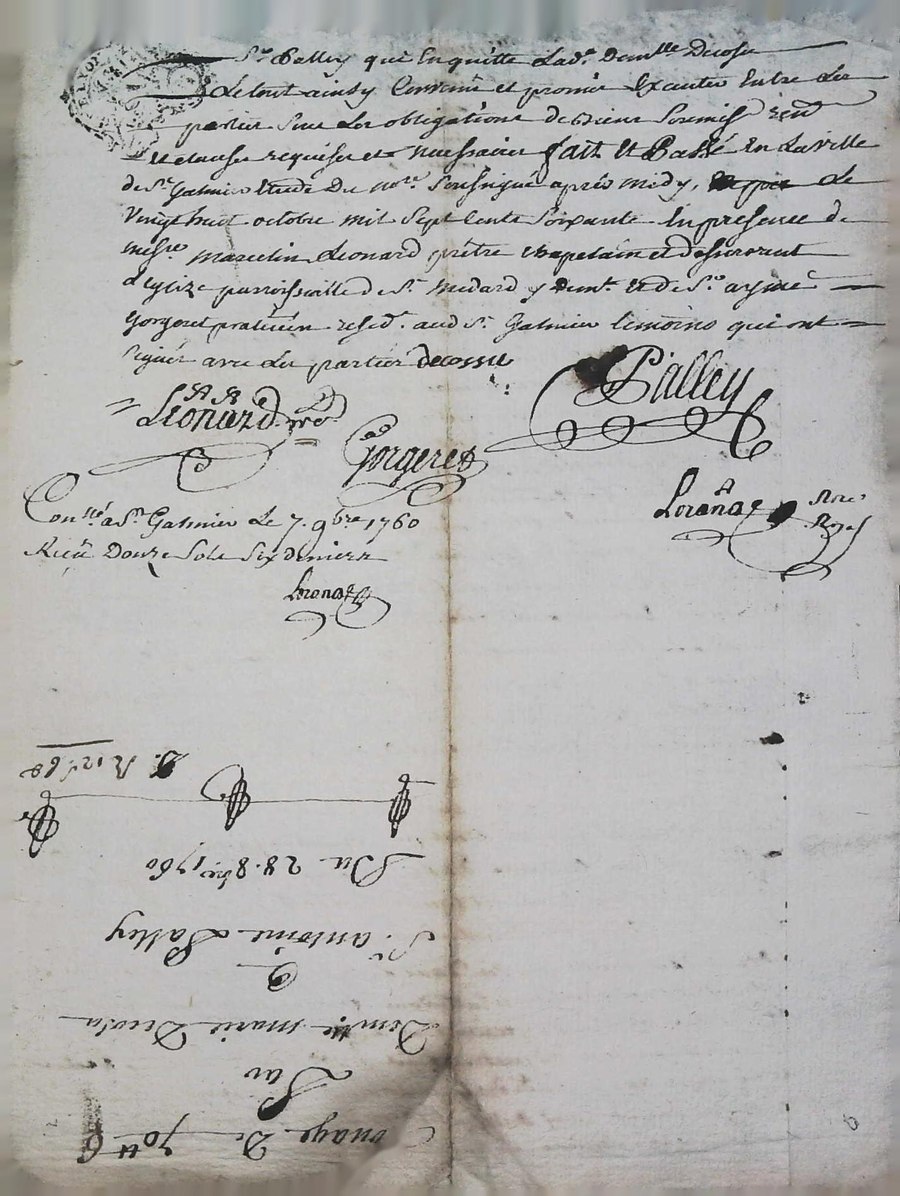 Sr. Palley qui En quitte Lad.e Demlle Decosse
Le tout ainsy Convenu et promis Executer Entre Les
parties sous Les obligations de Biens soumise renon
et clauses requises et necessaires fait et Passé En La ville
de St. Galmier Etude Du nore. soussigné après midy, Le
Vingt huit octobre mil sept cents soixante En presence de
messre. marcelin Leonard prêtre chapelain et desservant
L'eglize parroissialle de St. medard y demt. et de Sr. aymé
Gorgeret praticien resid. aud St. Galmier temoins qui ont
signés avec Les parties decosse
Palley
Leonard ptre
Gorgeret
Con.lé a St. Galmier Le 7. 9bre 1760
Reçu Douze Sols Six deniers
S. R 12s 6d
Du 28. 8bre 1760
Sr. antoine Palley
a
Demlle marie Decosse
Par
70tt